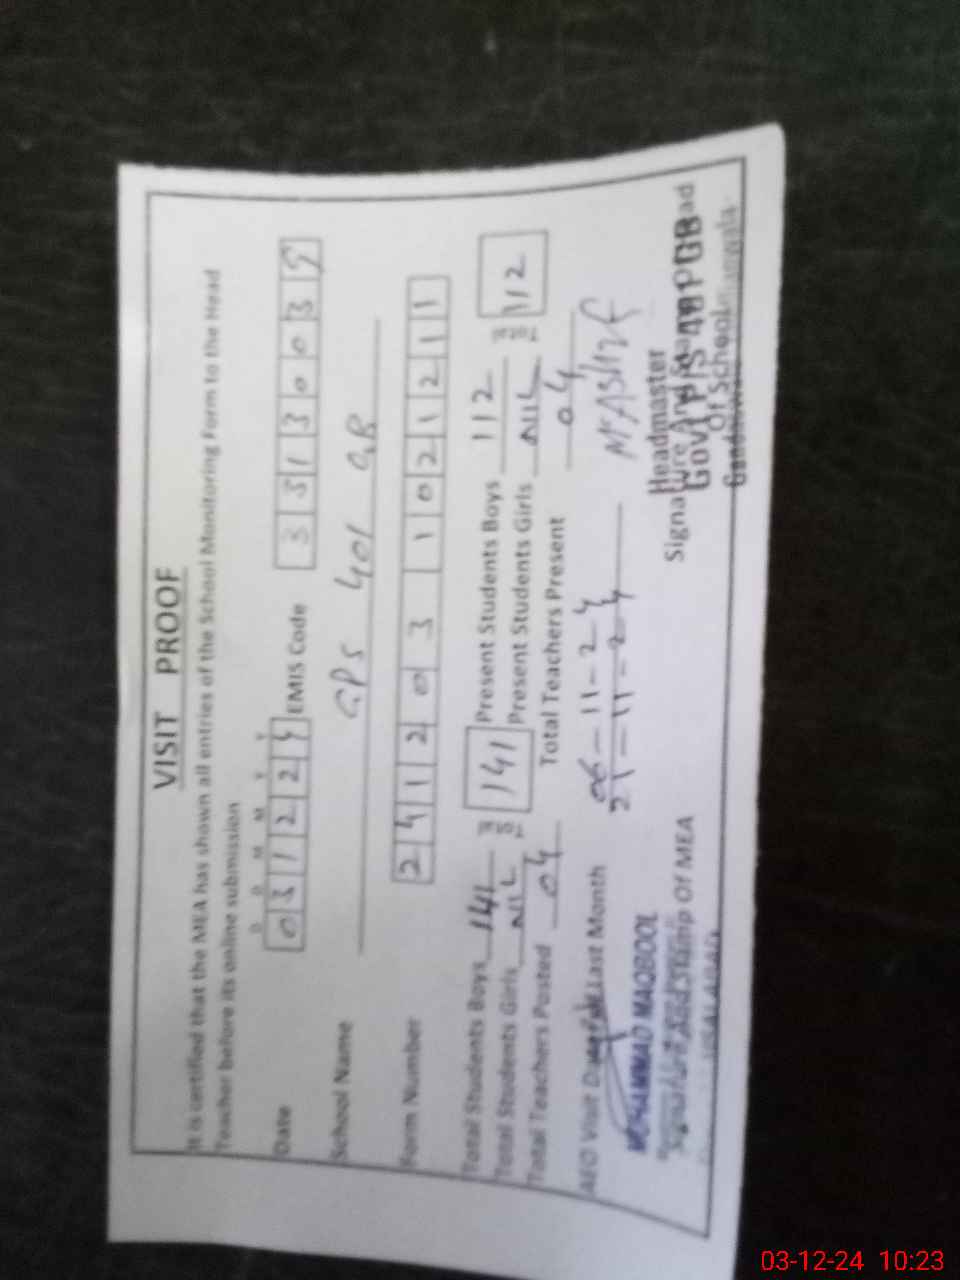 VISIT PROOF
It is certified that the MEA has shown all entries of the School Monitoring Form to the Head
Teacher before its online submission
D D M M Y Y
Date 031224 EMIS Code 3313003
School Name GPS 401 GB
Form Number 2412031021211
Total Students Boys 141 141 Present Students Boys 112 112
Total Students Girls NIL Present Students Girls NIL
Total Teachers Posted 04 Total Teachers Present 04
AEO Visit Last Month 06-11-24
21-11-24
MUHAMMAD MAQBOOL
Signature And Stamp Of MEA
FAISALABAD
M ASHRF
Headmaster
Signature And Stamp
Of School
03-12-24 10:23